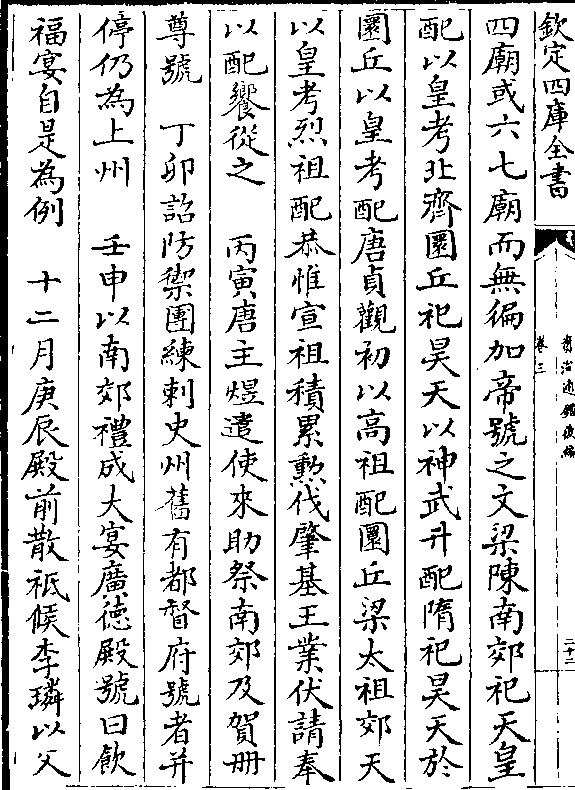 欽定四庫全書
資治通鑑後編
卷三
二十二
四廟或六七廟而無徧加帝號之文梁陳南郊祀天皇
配以皇考北齊圜丘祀昊天以神武升配隋祀昊天於
圜丘以皇考配唐貞觀初以高祖配圜丘梁太祖郊天
以皇考烈祖配恭惟宣祖積累勲伐肇基王業伏請奉
以配饗從之　丙寅唐主煜遣使來助祭南郊及賀册
尊號　丁卯詔防禦團練刺史州舊有都督府號者并
停仍為上州　壬申以南郊禮成大宴廣徳殿號曰飲
福宴自是為例　十二月庚辰殿前散祗候李璘以父